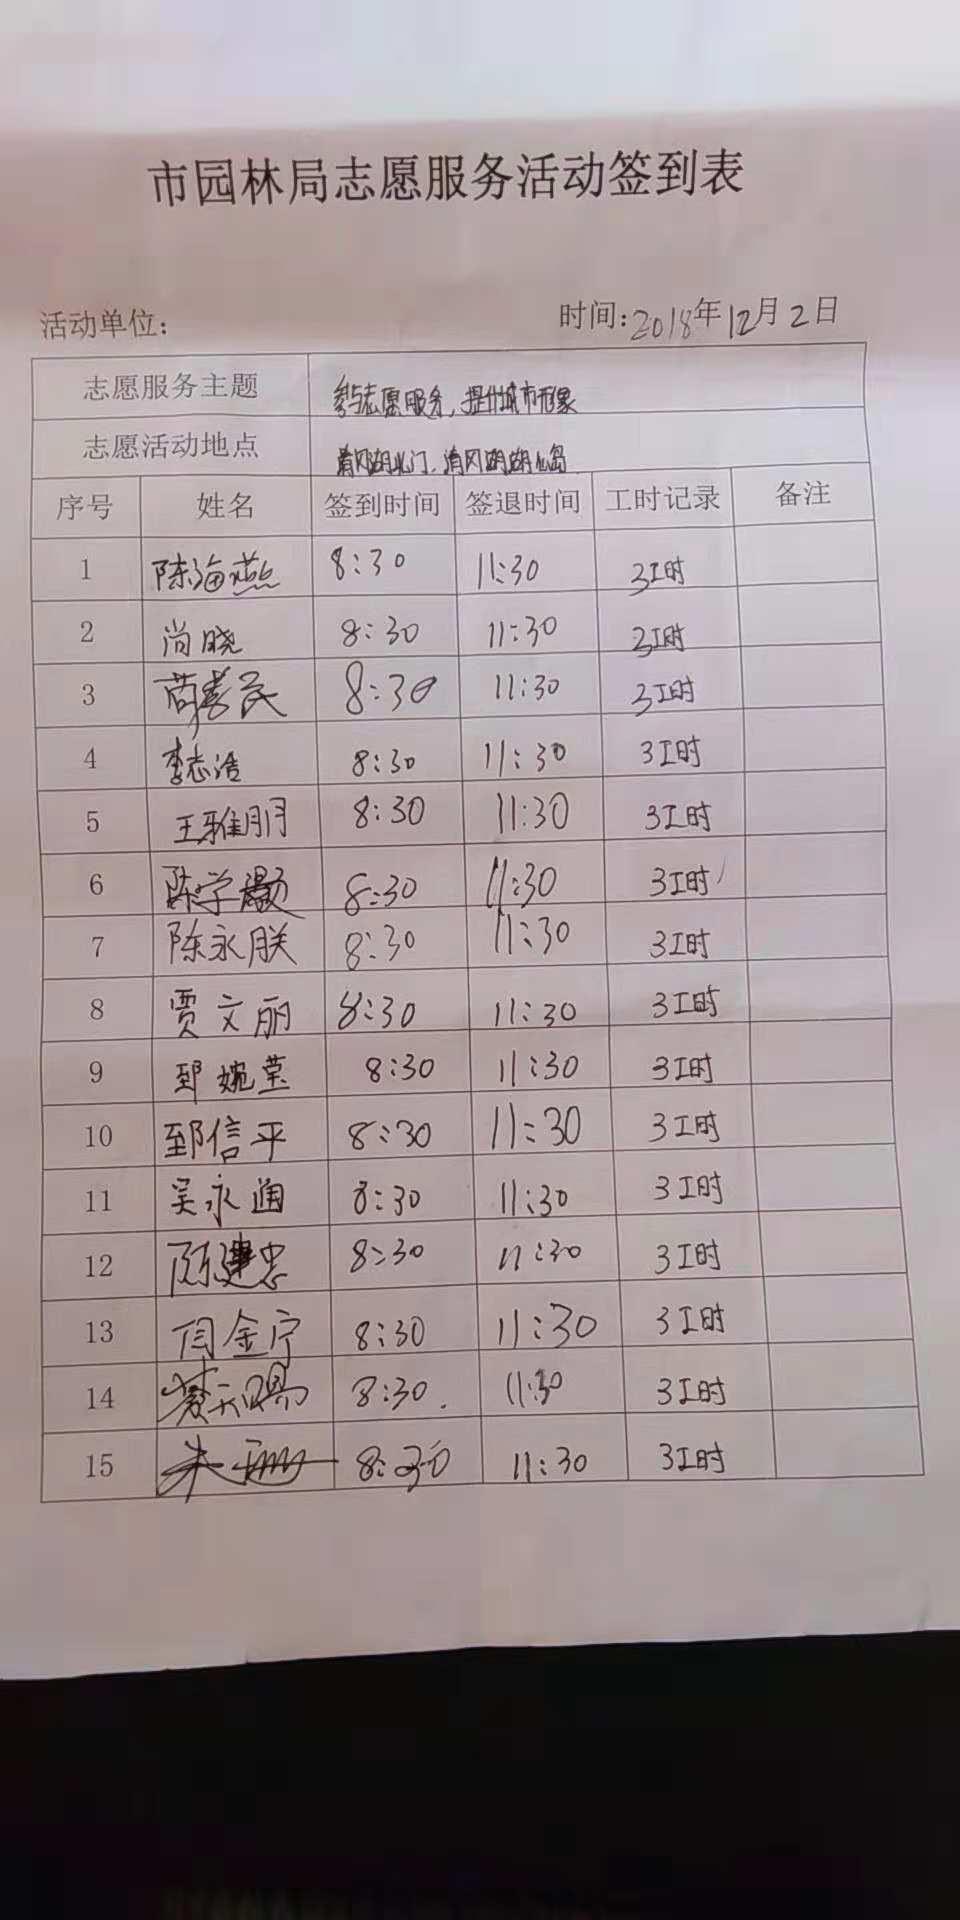 市园林局志愿服务活动签到表
活动单位: 时间:2018年12月2日
志愿服务主题 参与志愿服务,提升城市形象
志愿活动地点 清风湖北门、清风湖湖心岛
序号 姓名 签到时间 签退时间 工时记录 备注
1 陈海燕 8:30 11:30 3工时
2 尚晓 8:30 11:30 3工时
3 8:30 11:30 3工时
4 李志浩 8:30 11:30 3工时
5 王雅朋 8:30 11:30 3工时
6 陈学 8:30 11:30 3工时
7 陈永朕 8:30 11:30 3工时
8 贾文丽 8:30 11:30 3工时
9 郅婉莹 8:30 11:30 3工时
10 郅信平 8:30 11:30 3工时
11 吴永通 8:30 11:30 3工时
12 陈建忠 8:30 11:30 3工时
13 闫金宁 8:30 11:30 3工时
14 8:30 11:30 3工时
15 朱珊 8:30 11:30 3工时